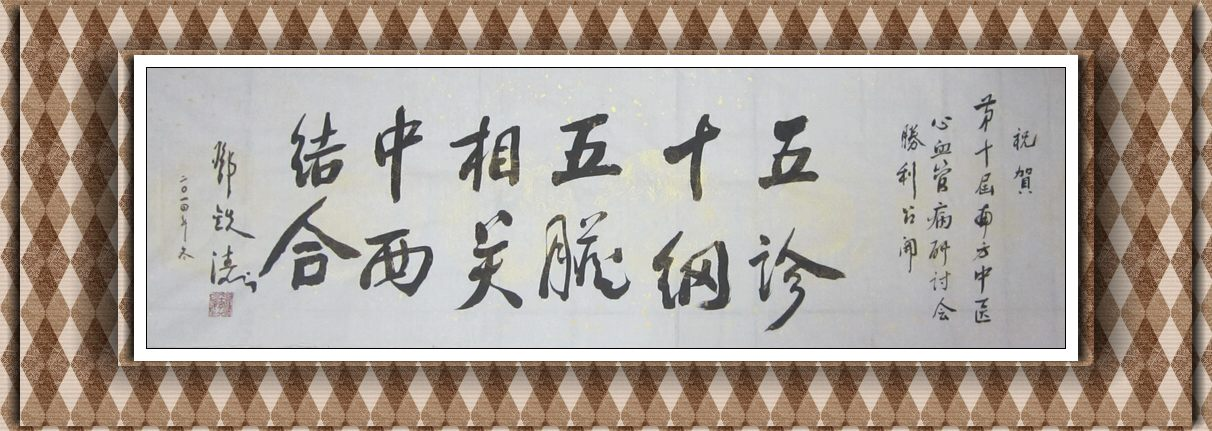 祝贺
第十届南方中医
心血管病研讨会
勝利召開
五诊
十纲
五臟
相关
中西
结合
鄧铁涛
二〇一四年冬